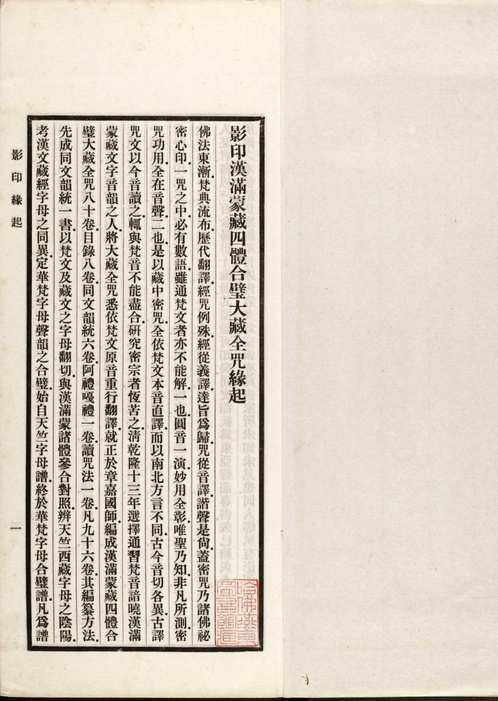 影印漢滿蒙藏四體合璧大藏全咒緣起
佛法東漸梵典流布歷代翻譯經咒例殊經從義譯達旨爲歸咒從音譯諧聲是尙蓋密咒乃諸佛祕
密心印一咒之中必有數語雖通梵文者亦不能解一也圓音一演妙用全彰唯聖乃知非凡所測密
咒功用全在音聲二也是以藏中密咒全依梵文本音直譯而以南北方言不同古今音切各異古譯
咒文以今音讀之輒與梵音不能盡合研究密宗者恆苦之清乾隆十三年選擇通習梵音諳曉漢滿
蒙藏文字音韻之人將大藏全咒悉依梵文原音重行翻譯就正於章嘉國師編成漢滿蒙藏四體合
璧大藏全咒八十卷目錄八卷同文韻統六卷阿禮嘎禮一卷讀咒法一卷凡九十六卷其編纂方法
先成同文韻統一書以梵文及藏文之字母翻切與漢滿蒙諸體參合對照辨天竺西藏字母之陰陽
考漢文藏經字母之同異定華梵字母聲韻之合璧始自天竺字母譜終於華梵字母合璧譜凡爲譜
影印緣起
一